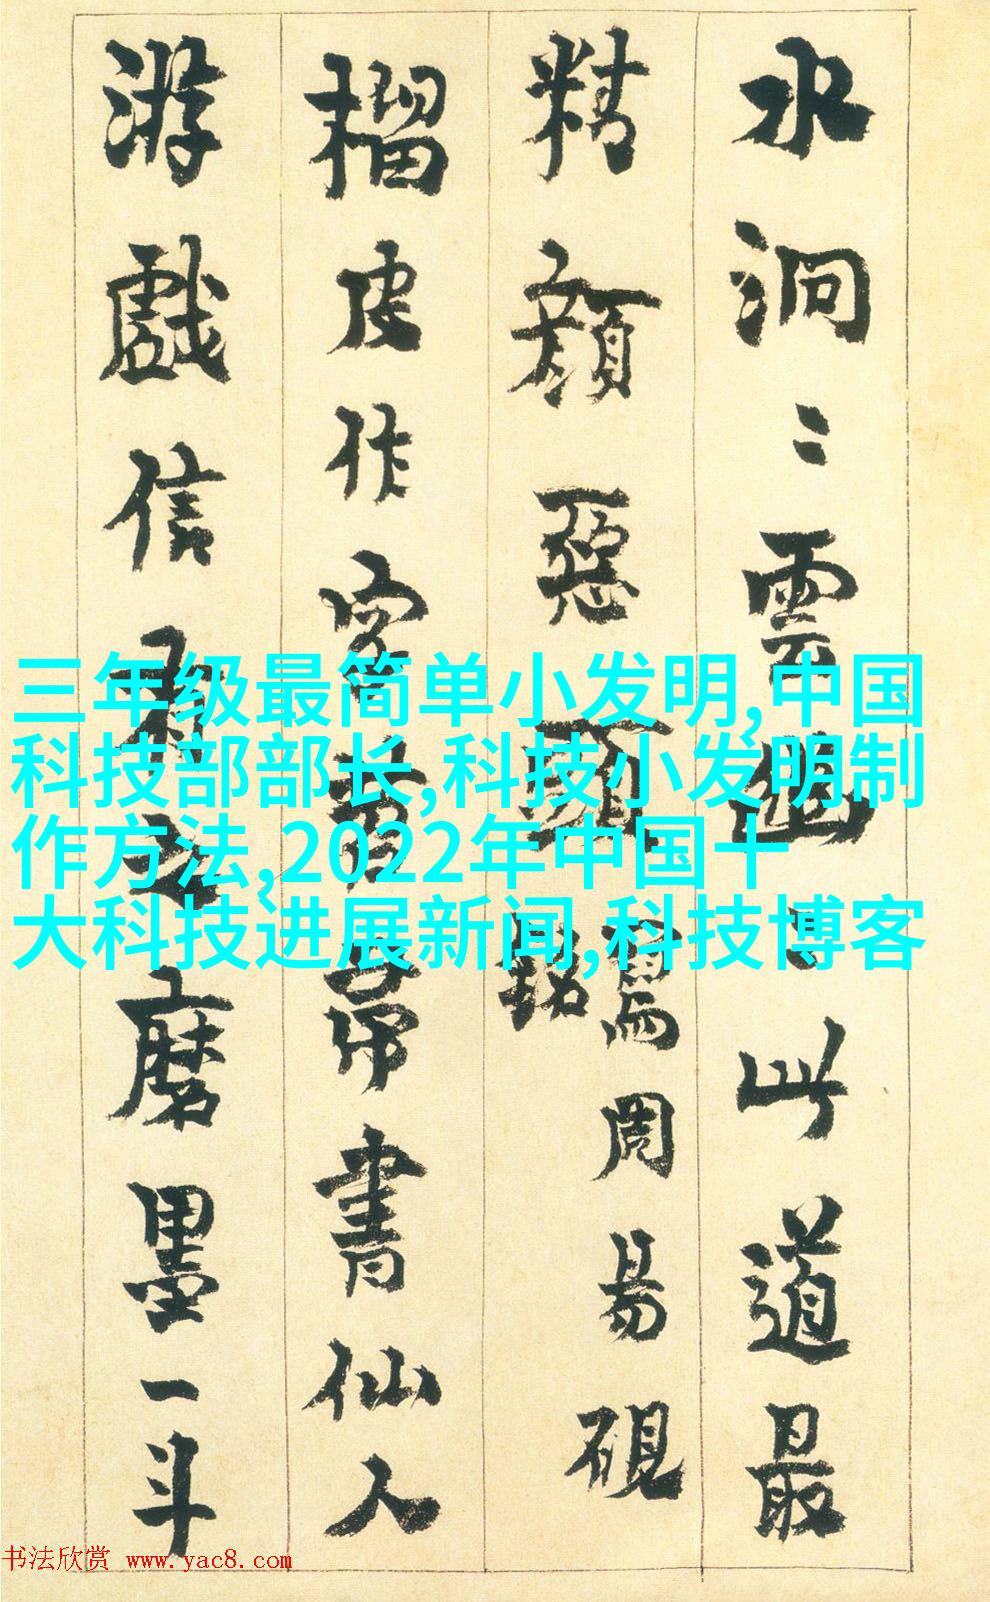 水洞〻雲幽〻此道最
精顏惡頭
寫周易硯
銘
榴皮作字苕帚書仙人
游戲信有之磨墨一斗
三年级最简单小发明,中国
科技部部长,科技小发明制
作方法,2022年中国十
大科技进展新闻,科技博客
书法欣赏 www.yac8.com